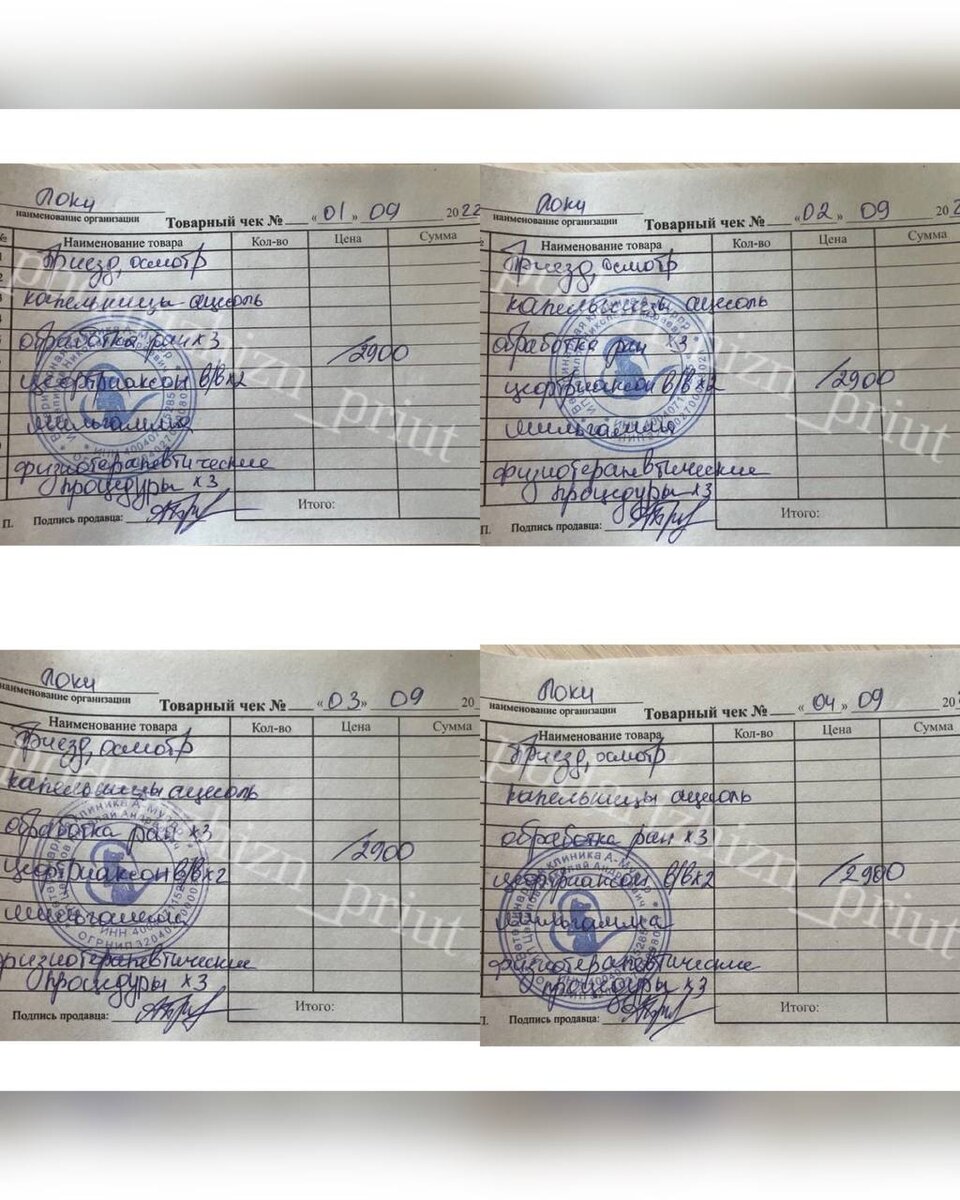 Локи
наименование организации
Товарный чек № « 01 » 09 2022
№ Наименование товара Кол-во Цена Сумма
Приезд, осмотр
капельницы ацесоль
обработка ран х3
/2900
цефтриаксон В/В х2
мильгамма
физиотерапевтические
процедуры х3
Итого:
П. Подпись продавца:
Локи
наименование организации
Товарный чек № « 02 » 09 202
Наименование товара Кол-во Цена Сумма
Приезд, осмотр
капельницы ацесоль
обработка ран х3
цефтриаксон В/В х2 /2900
мильгамма
физиотерапевтические
процедуры х3
Итого:
П. Подпись продавца:
Локи
наименование организации
Товарный чек № « 03 » 09 20
Наименование товара Кол-во Цена Сумма
Приезд, осмотр
капельницы ацесоль
обработка ран х3
/2900
цефтриаксон В/В х2
мильгамма
физиотерапевтические
процедуры х3
Итого:
Подпись продавца:
Локи
наименование организации
Товарный чек № « 04 » 09 20
Наименование товара Кол-во Цена Сумма
Приезд, осмотр
капельницы ацесоль
обработка ран х3
цефтриаксон В/В х2 /2900
мильгамма
физиотерапевтические
процедуры х3
Итого:
П. Подпись продавца: